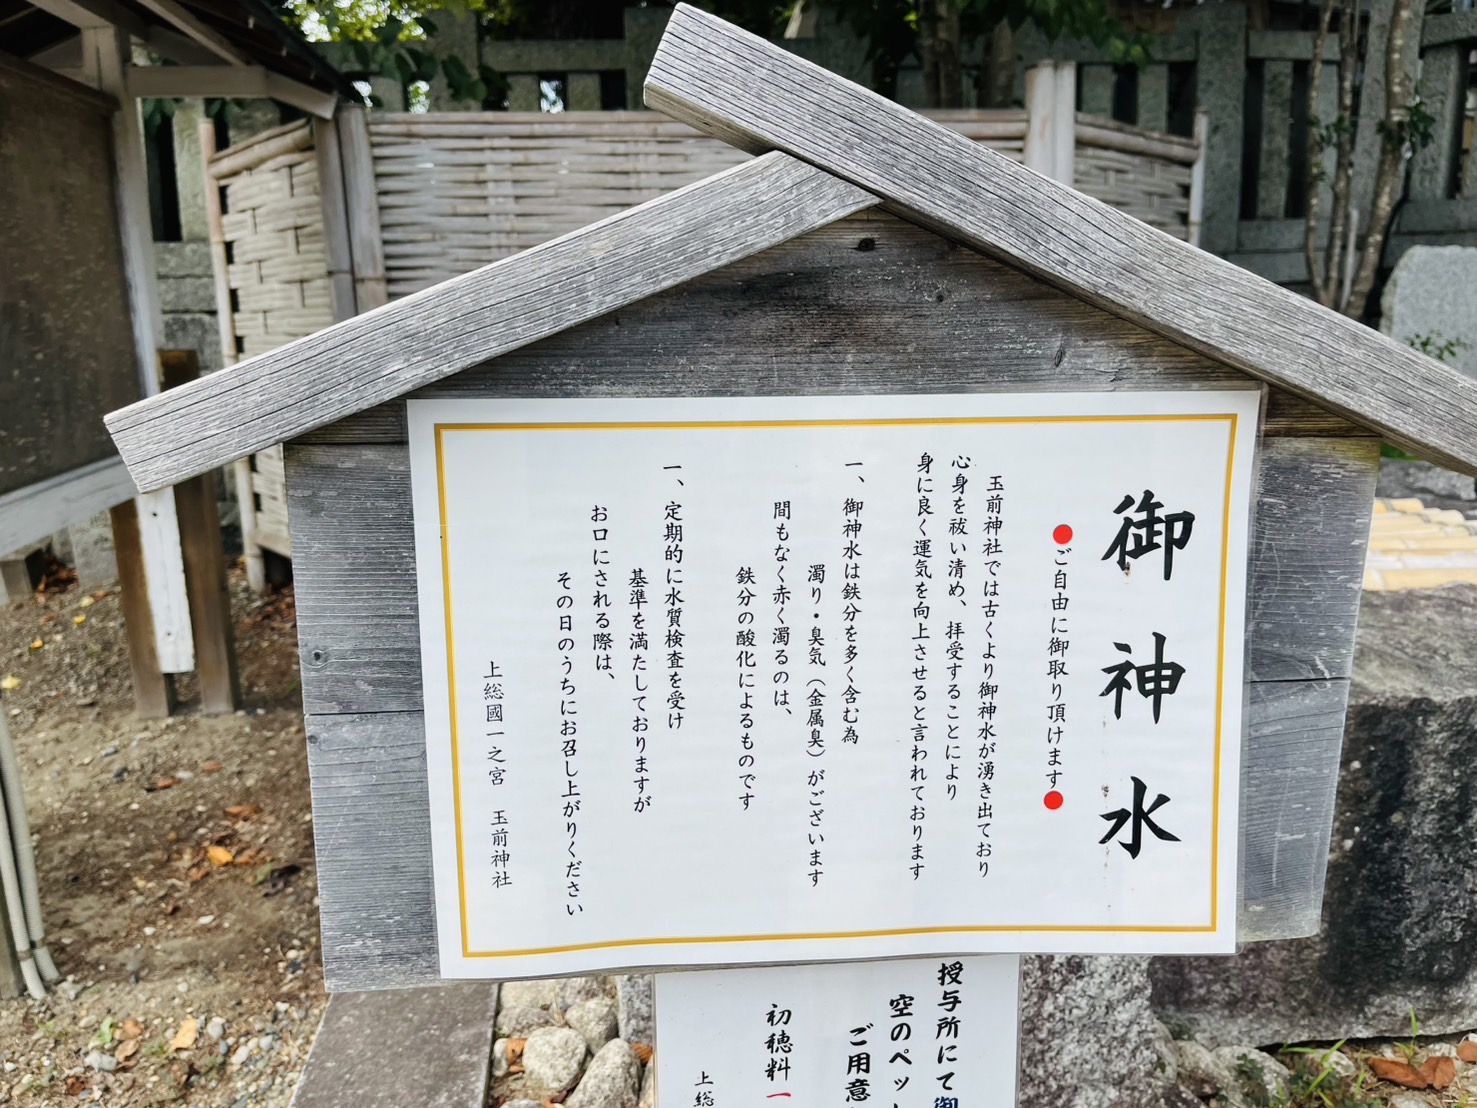 御神水
●ご自由に御取り頂けます●
玉前神社では古くより御神水が湧き出ており
心身を祓い清め、拝受することにより
身に良く運気を向上させると言われております
一、御神水は鉄分を多く含む為
濁り・臭気（金属臭）がございます
間もなく赤く濁るのは、
鉄分の酸化によるものです
一、定期的に水質検査を受け
基準を満たしておりますが
お口にされる際は、
その日のうちにお召し上がりください
上総國一之宮　玉前神社
授与所にて御
空のペッ
ご用意
初穂料一
上総